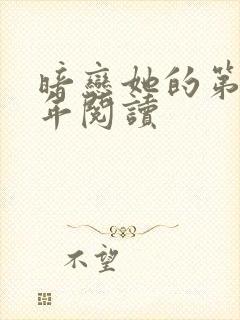 暗戀她的第
年閱讀
不望